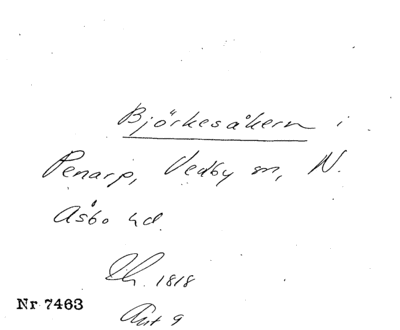 Björkesåkern i
Penarp, Vedby sn, N.
Åsbo hd.
Lh. 1818
Nr 7463
Akt 9